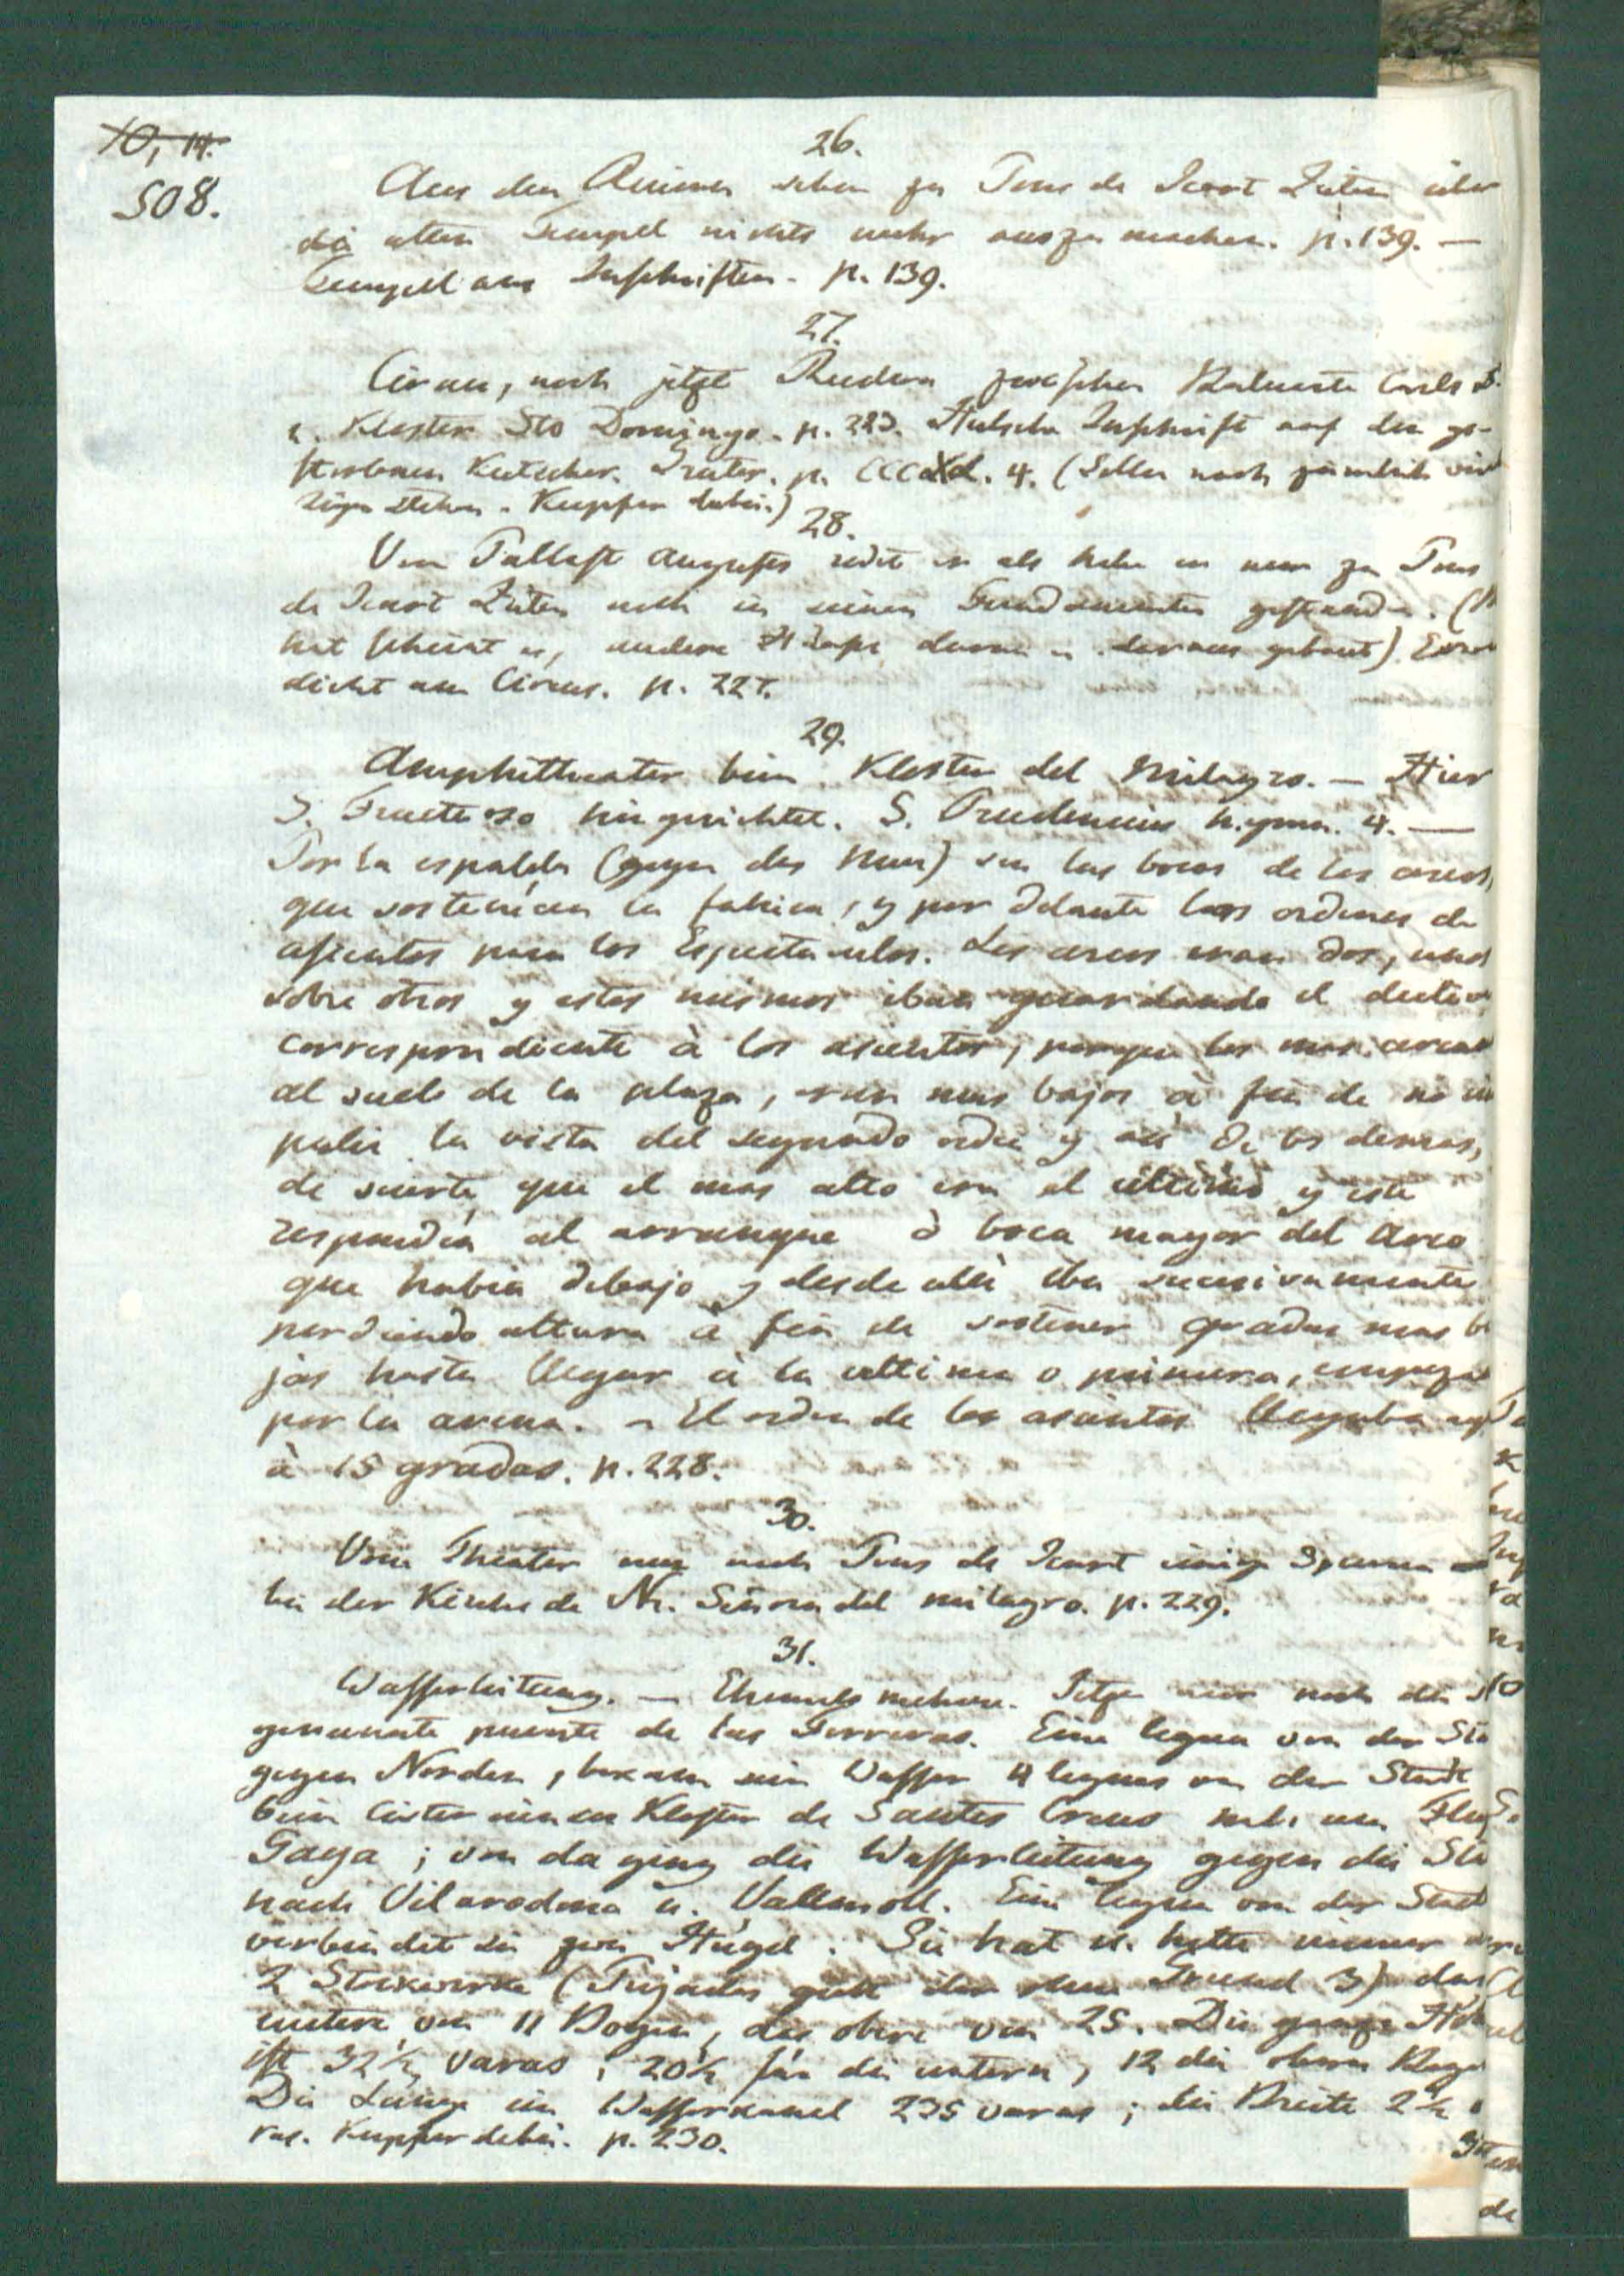 10, 14.
508.
26.
Aus den Ruinen schon zu Pons de Icart Zeiten über
die alten Tempel nichts mehr auszumachen. p. 139. —
Tempel aus Inschriften. p. 139.
27.
Circus, noch jetzt Rudera zwischen Baluarte Carls 5.
u. Kloster Sto Domingo. p. 223. Inschrift auf den ge-
storbenen Kutscher. Gruter. p. 4. (Sollen noch ziemlich
stehen. Kupfer dabei.)
28.
Vom Pallast Augustus redet er als habe er nur zu Pons
de Icart Zeiten noch in seinen Fundamenten gestanden. (
hat scheint es, andere darin u. daraus gebaut).
dicht am Circus. p. 227.
29.
Amphitheater beim Kloster del Milagro. — Hier
S. Fructuoso hingerichtet. S. Prudencius hymn. 4. —
Por la espalda (gegen das Meer) son las bocas de los arcos,
que sostenian la fabrica, y por delante los ordenes de
asientos para los Espectaculos. Los arcos eran dos, unos
sobre otros y estos mismos iban guardando el
correspondiente à los asientos, porque los mas
al suelo de la plaza, eran mas bajos à fin de no im
pedir la vista del segundo orden y asi de los demas,
de suerte, que el mas alto era el ultimo y este
respondia al arranque ò boca mayor del Arco
que habia debajo y desde alli iba sucesivamente
perdiendo altura à fin de sostener gradas mas ba
jas hasta llegar à la ultima o primera,
por la arena. — El orden de los asientos llegaba
à 15 gradas. p. 228.
30.
Vom Theater nur nach Pons de Icart einige Spuren
bei der Kirche de Nr. Señora del milagro. p. 229.
31.
Wasserleitung. — Ehemals mehrere. Jetzt nur noch die so
genannte puente de las Ferreras. Eine legua von der Sta
gegen Norden, bekam sein Wasser 4 leguas von der Stadt
beim Cistercienser Kloster de Santes Creus nah am Fluß
Gaya; von da ging die Wasserleitung gegen die Sta
nach Vilarodona u. Vallmoll. Eine legua von der Stadt
verbindet sie zwei Hügel. Sie hat u. hatte immer nur
2 Stockwerke (Pujades giebt ihr ohne Grund 3) das
untere von 11 Bogen, das obere von 25. Die ganze Höhe
ist 32½ varas; 20½ für die untern, 12 die obern Boge
Die Länge im Wasserkanal 235 varas; die Breite 2½
ras. Kupfer dabei. p. 230.